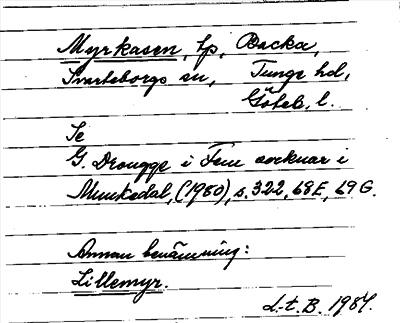 Myrkasen, tp, Backa,
Svarteborgs sn, Tunge hd,
Göteb. l.
Se
G. Drougge i Fem socknar i
Munkedal, (1980), s. 322, 68E, 69G.
Annan benämning:
Lillemyr.
L-t. B. 1987.